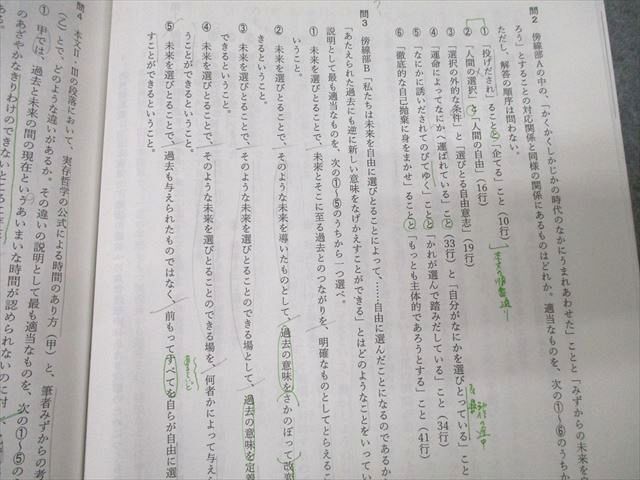 問2 傍線部Aの中の、「かくかくしかじかの時代のなかにうまれあわせた」ことと「みずからの未来を
ろう」とすることの対応関係と同様の関係にあるものはどれか。適当なものを、次の①〜⑥のうちか
ただし、解答の順序は問わない。
① 「投げだされ」ることと「企てる」こと(10行)
② 「人間の選択」と「人間の自由」(16行)
③ 「選択の外的な条件」と「選びとる自由意志」(19行)
④ 「運命によってなにかへ運ばれている」ことと「自分がなにかを選びとっている」こと
⑤ 「なにかに誘いだされてのびてゆく」こと(33行)と「かれが選んで踏みだしている」こと(34行)
⑥ 「徹底的な自己抛棄に身をまかせ」ることと「もっとも主体的であろうとする」こと(41行)
本文の順番通り
問3 傍線部B「私たちは未来を自由に選びとることによって、……自由に選んだことになるのであるか
「あたえられた過去にも逆に新しい意味をなげかえすことができる」とはどのようなことをいってい
説明として最も適当なものを、次の①〜⑤のうちから一つ選べ。
① 未来を選びとることで、未来とそこに至る過去とのつながりを、明確なものとしてとらえるこ
いうこと。
② 未来を選びとることで、そのような未来を導いたものとして、過去の意味をさかのぼって改変
きるということ。
③ 未来を選びとることで、そのような未来を選びとることのできる場として、過去の意味を定義
できるということ。
④ 未来を選びとることで、そのような未来を選びとることのできる場を、何者かによって与えら
ことができるということ。
⑤ 未来を選びとることで、過去も与えられたものではなく、前もってすべてを自らが自由に選
すことができるということ。
問4 本文Ⅱ・Ⅲの段落において、実存哲学の公式による時間のあり方(甲)と、筆者みずからの考
(乙)とで、どのような違いがあるか。その違いの説明として最も適当なものを、次の①〜⑤の
① 甲では、過去と未来の間の現在というあいまいな時間が認められないのに対
のあざやかなきりわけのできないところに